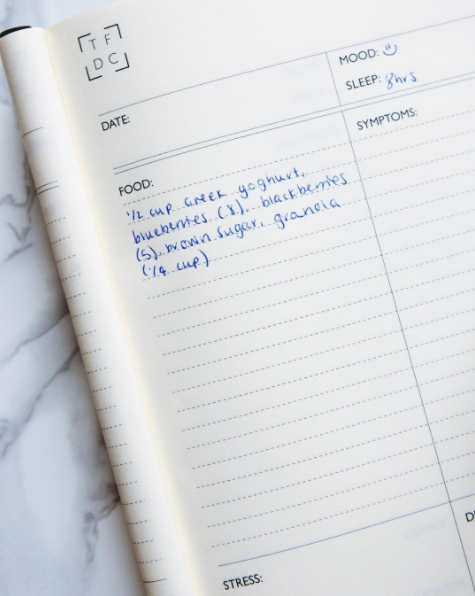 TF
DC
MOOD: ☺
SLEEP: 8hrs
DATE:
SYMPTOMS:
FOOD:
1/2 cup Greek yoghurt,
blueberries (8), blackberries
(5), brown sugar, granola
(1/4 cup)
STRESS: